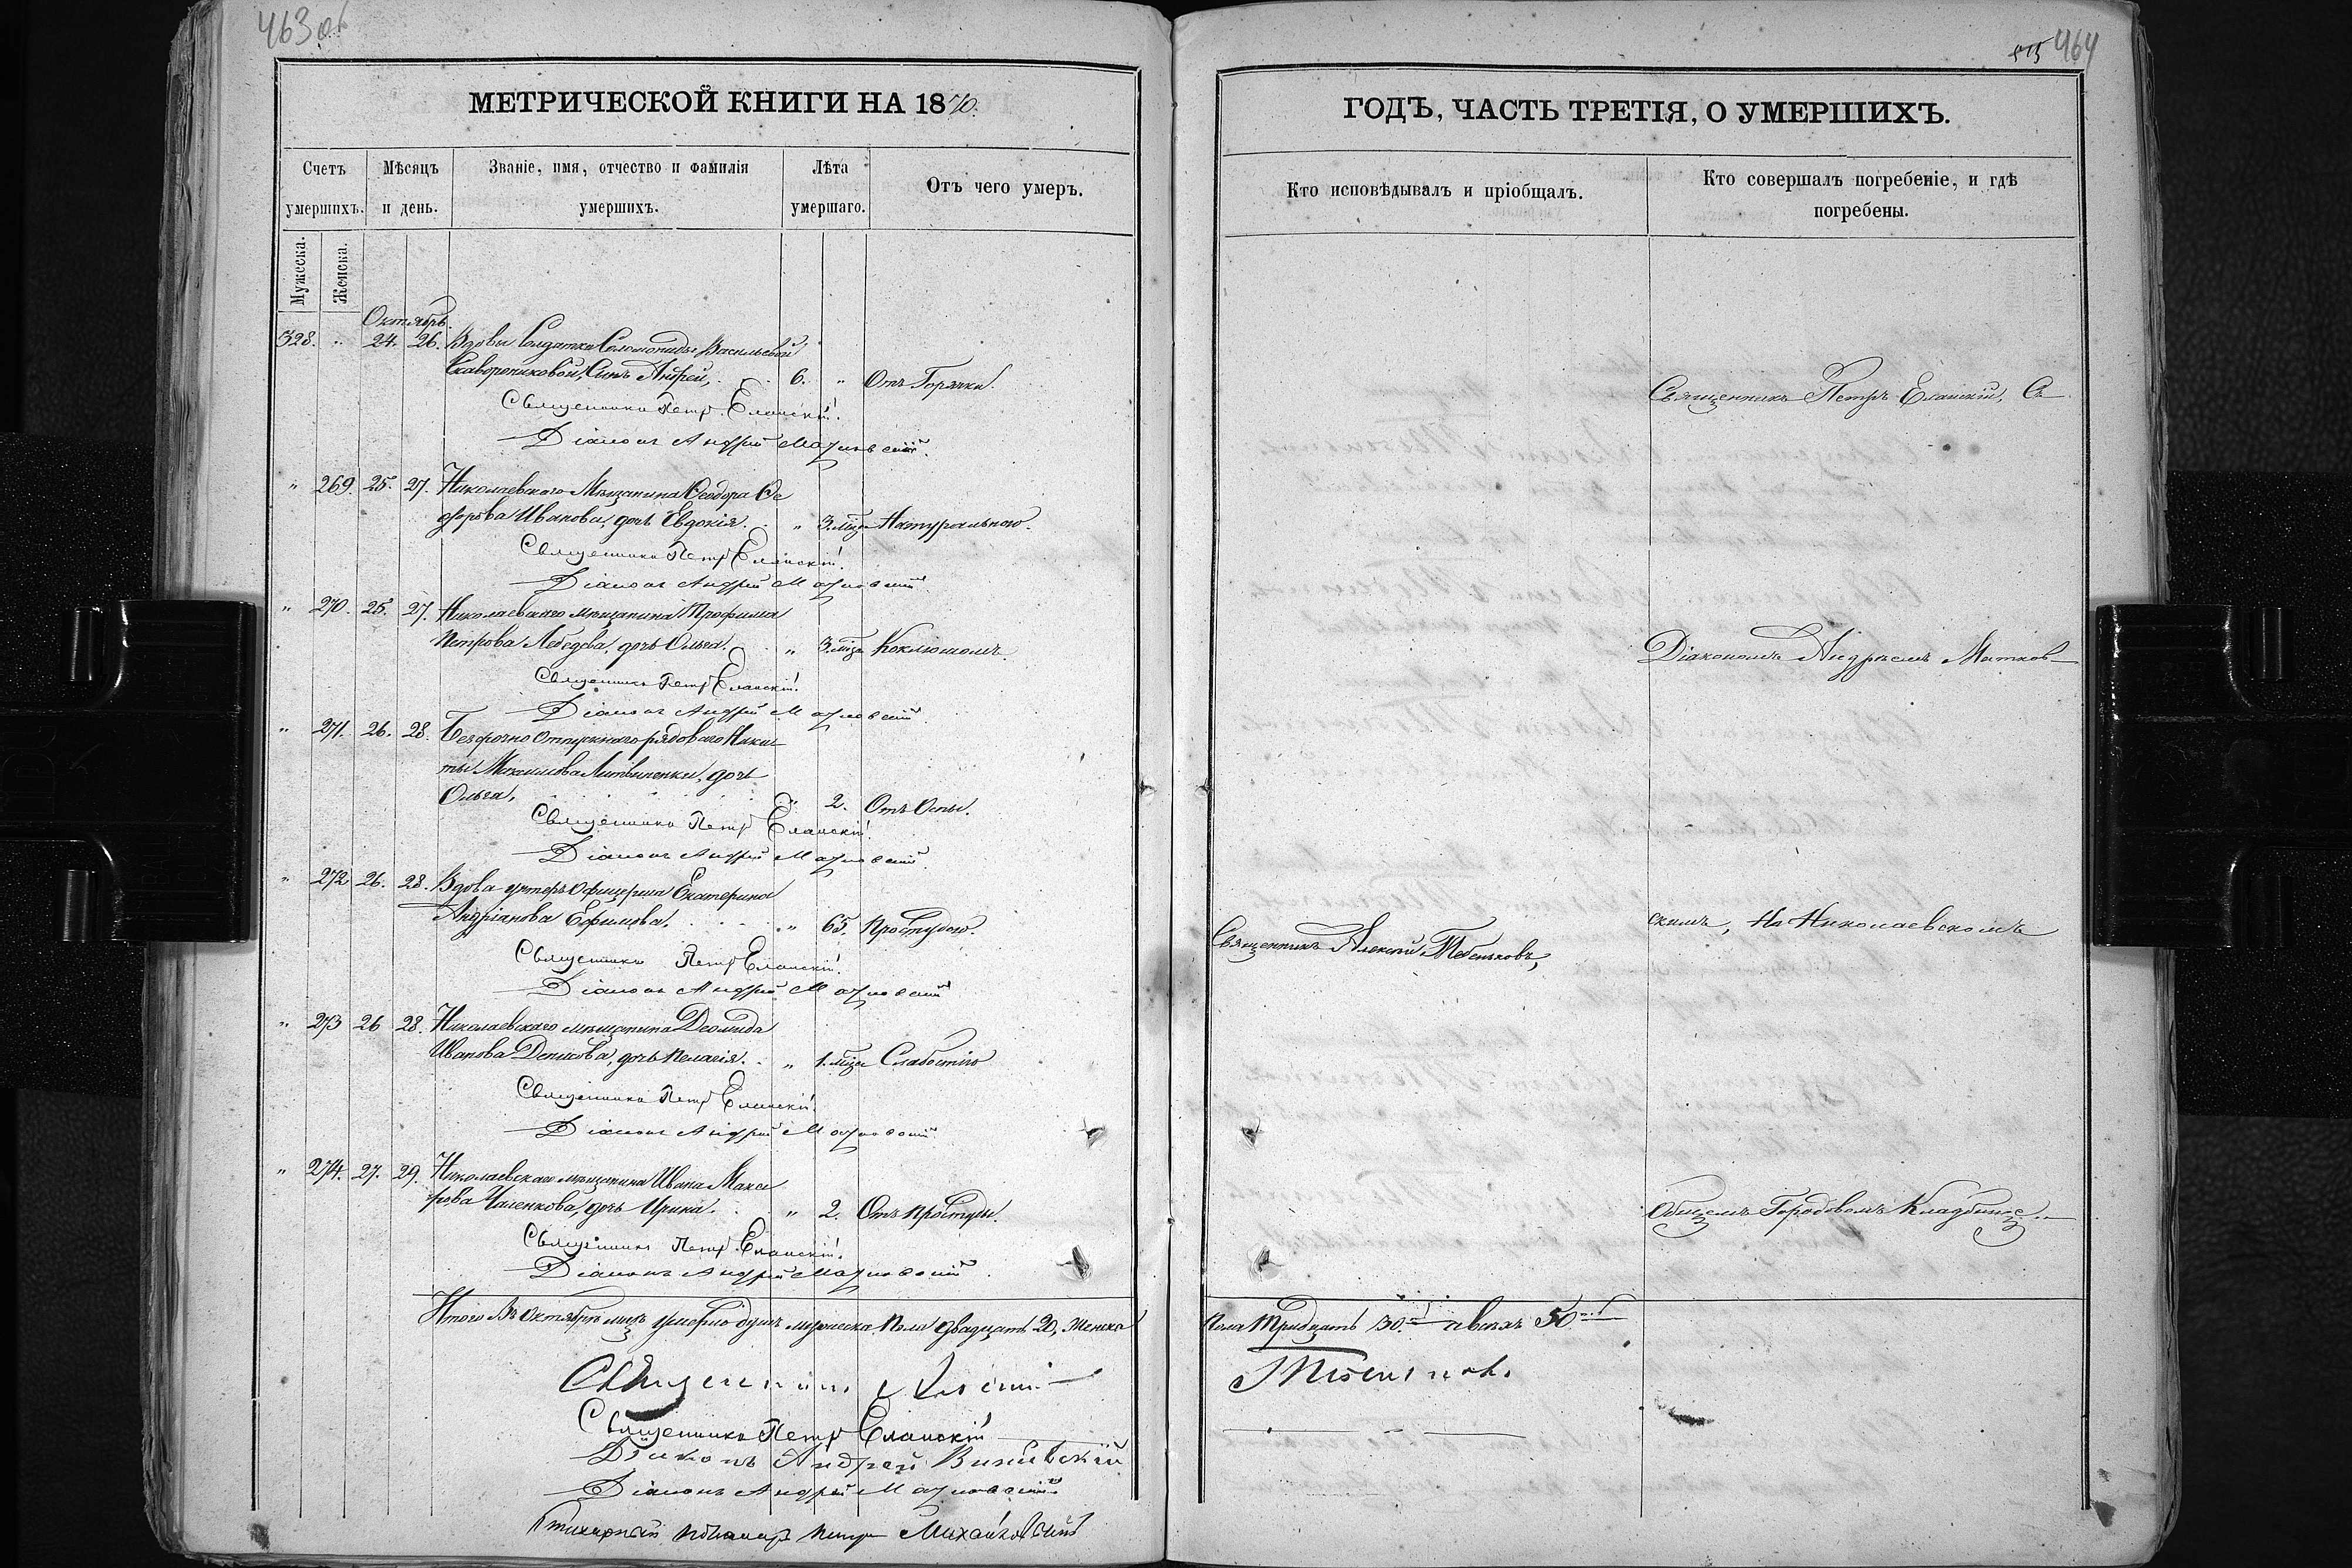 463 об
МЕТРИЧЕСКОЙ КНИГИ НА 1870.
Счетъ умершихъ.
Мѣсяцъ и день.
Званіе, имя, отчество и фамилія умершихъ.
Лѣта умершаго.
Отъ чего умеръ.
Мужеска.
Женска.
Октябрь.
328. " 24. 26. Вдовы Солдатки Соломониды Васильевой
Скаворониковой, Сынъ Андрей, 6. " Отъ Горячки.
Священникъ Петръ Еланскій.
Діаконъ Андрей Матковскій.
" 269. 25. 27. Николаевскаго Мѣщанина Ѳеодора Ѳе
дорова Иванова, дочь Евдокія. " 3. мца Натурального.
Священникъ Петръ Еланскій.
Діаконъ Андрей Матковскій.
" 270. 25. 27. Николаевскаго мѣщанина Трофима
Петрова Лебедева, дочь Ольга. " 3. мца Коклюшомъ.
Священникъ Петръ Еланскій.
Діаконъ Андрей Матковскій.
" 271. 26. 28. Безсрочно отпускнаго рядоваго Ники
ты Максимова Литвиненки, дочь
Ольга, " 2. Отъ Оспы.
Священникъ Петръ Еланскій.
Діаконъ Андрей Матковскій.
" 272 26. 28. Вдова унтеръ Офицерша Екатерина
Андріанова Ефимова. " 65. Простудою.
Священникъ Петръ Еланскій.
Діаконъ Андрей Матковскій
" 273 26 28. Николаевскаго мѣщанина Деомида
Иванова Деникова, дочь Пелагія. " 1. мца Слабостію
Священникъ Петръ Еланскій.
Діаконъ Андрей Матковскій
" 274. 27. 29. Николаевскаго мѣщанина Ивана
дочь Ирина. " 2. Отъ простуды.
Священникъ Петръ Еланскій.
Діаконъ Андрей Матковскій.
Итого Въ Октябрѣ мцѣ умерло душъ мужеска пола двадцать 20, Женска
Священникъ Алексій
Священникъ Петръ Еланскій
Діаконъ Андрей
Діаконъ Андрей Матковскій
Пономарь Петръ Михайловскій
464
ГОДЪ, ЧАСТЬ ТРЕТІЯ, О УМЕРШИХЪ.
Кто исповѣдывалъ и пріобщалъ.
Кто совершалъ погребеніе, и гдѣ погребены.
Священникъ Петръ Еланскій, Съ
Діакономъ Андреемъ Матков
скимъ, На Николаевскомъ
Священникъ Алексій Тебеньковъ,
Общемъ Городовомъ Кладбищѣ
пола Тридцать 30. а всехъ 50
Тебеньковъ.